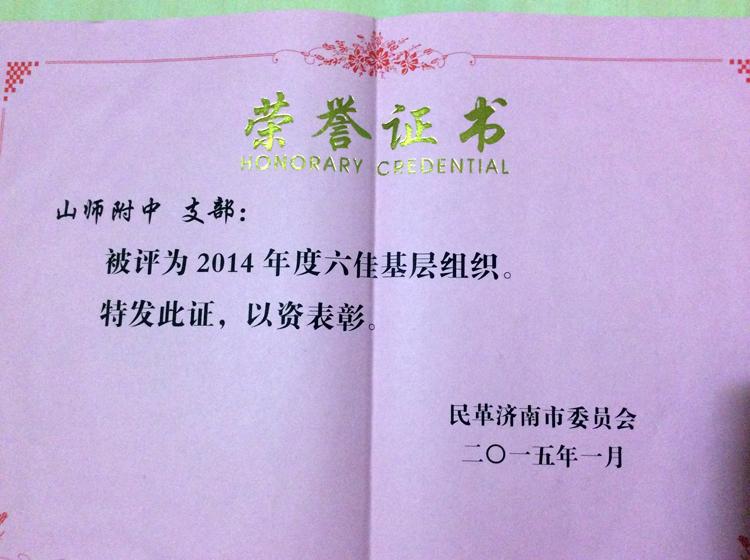 荣誉证书
HONORARY CREDENTIAL
山师附中 支部：
被评为2014年度六佳基层组织。
特发此证，以资表彰。
民革济南市委员会
二〇一五年一月